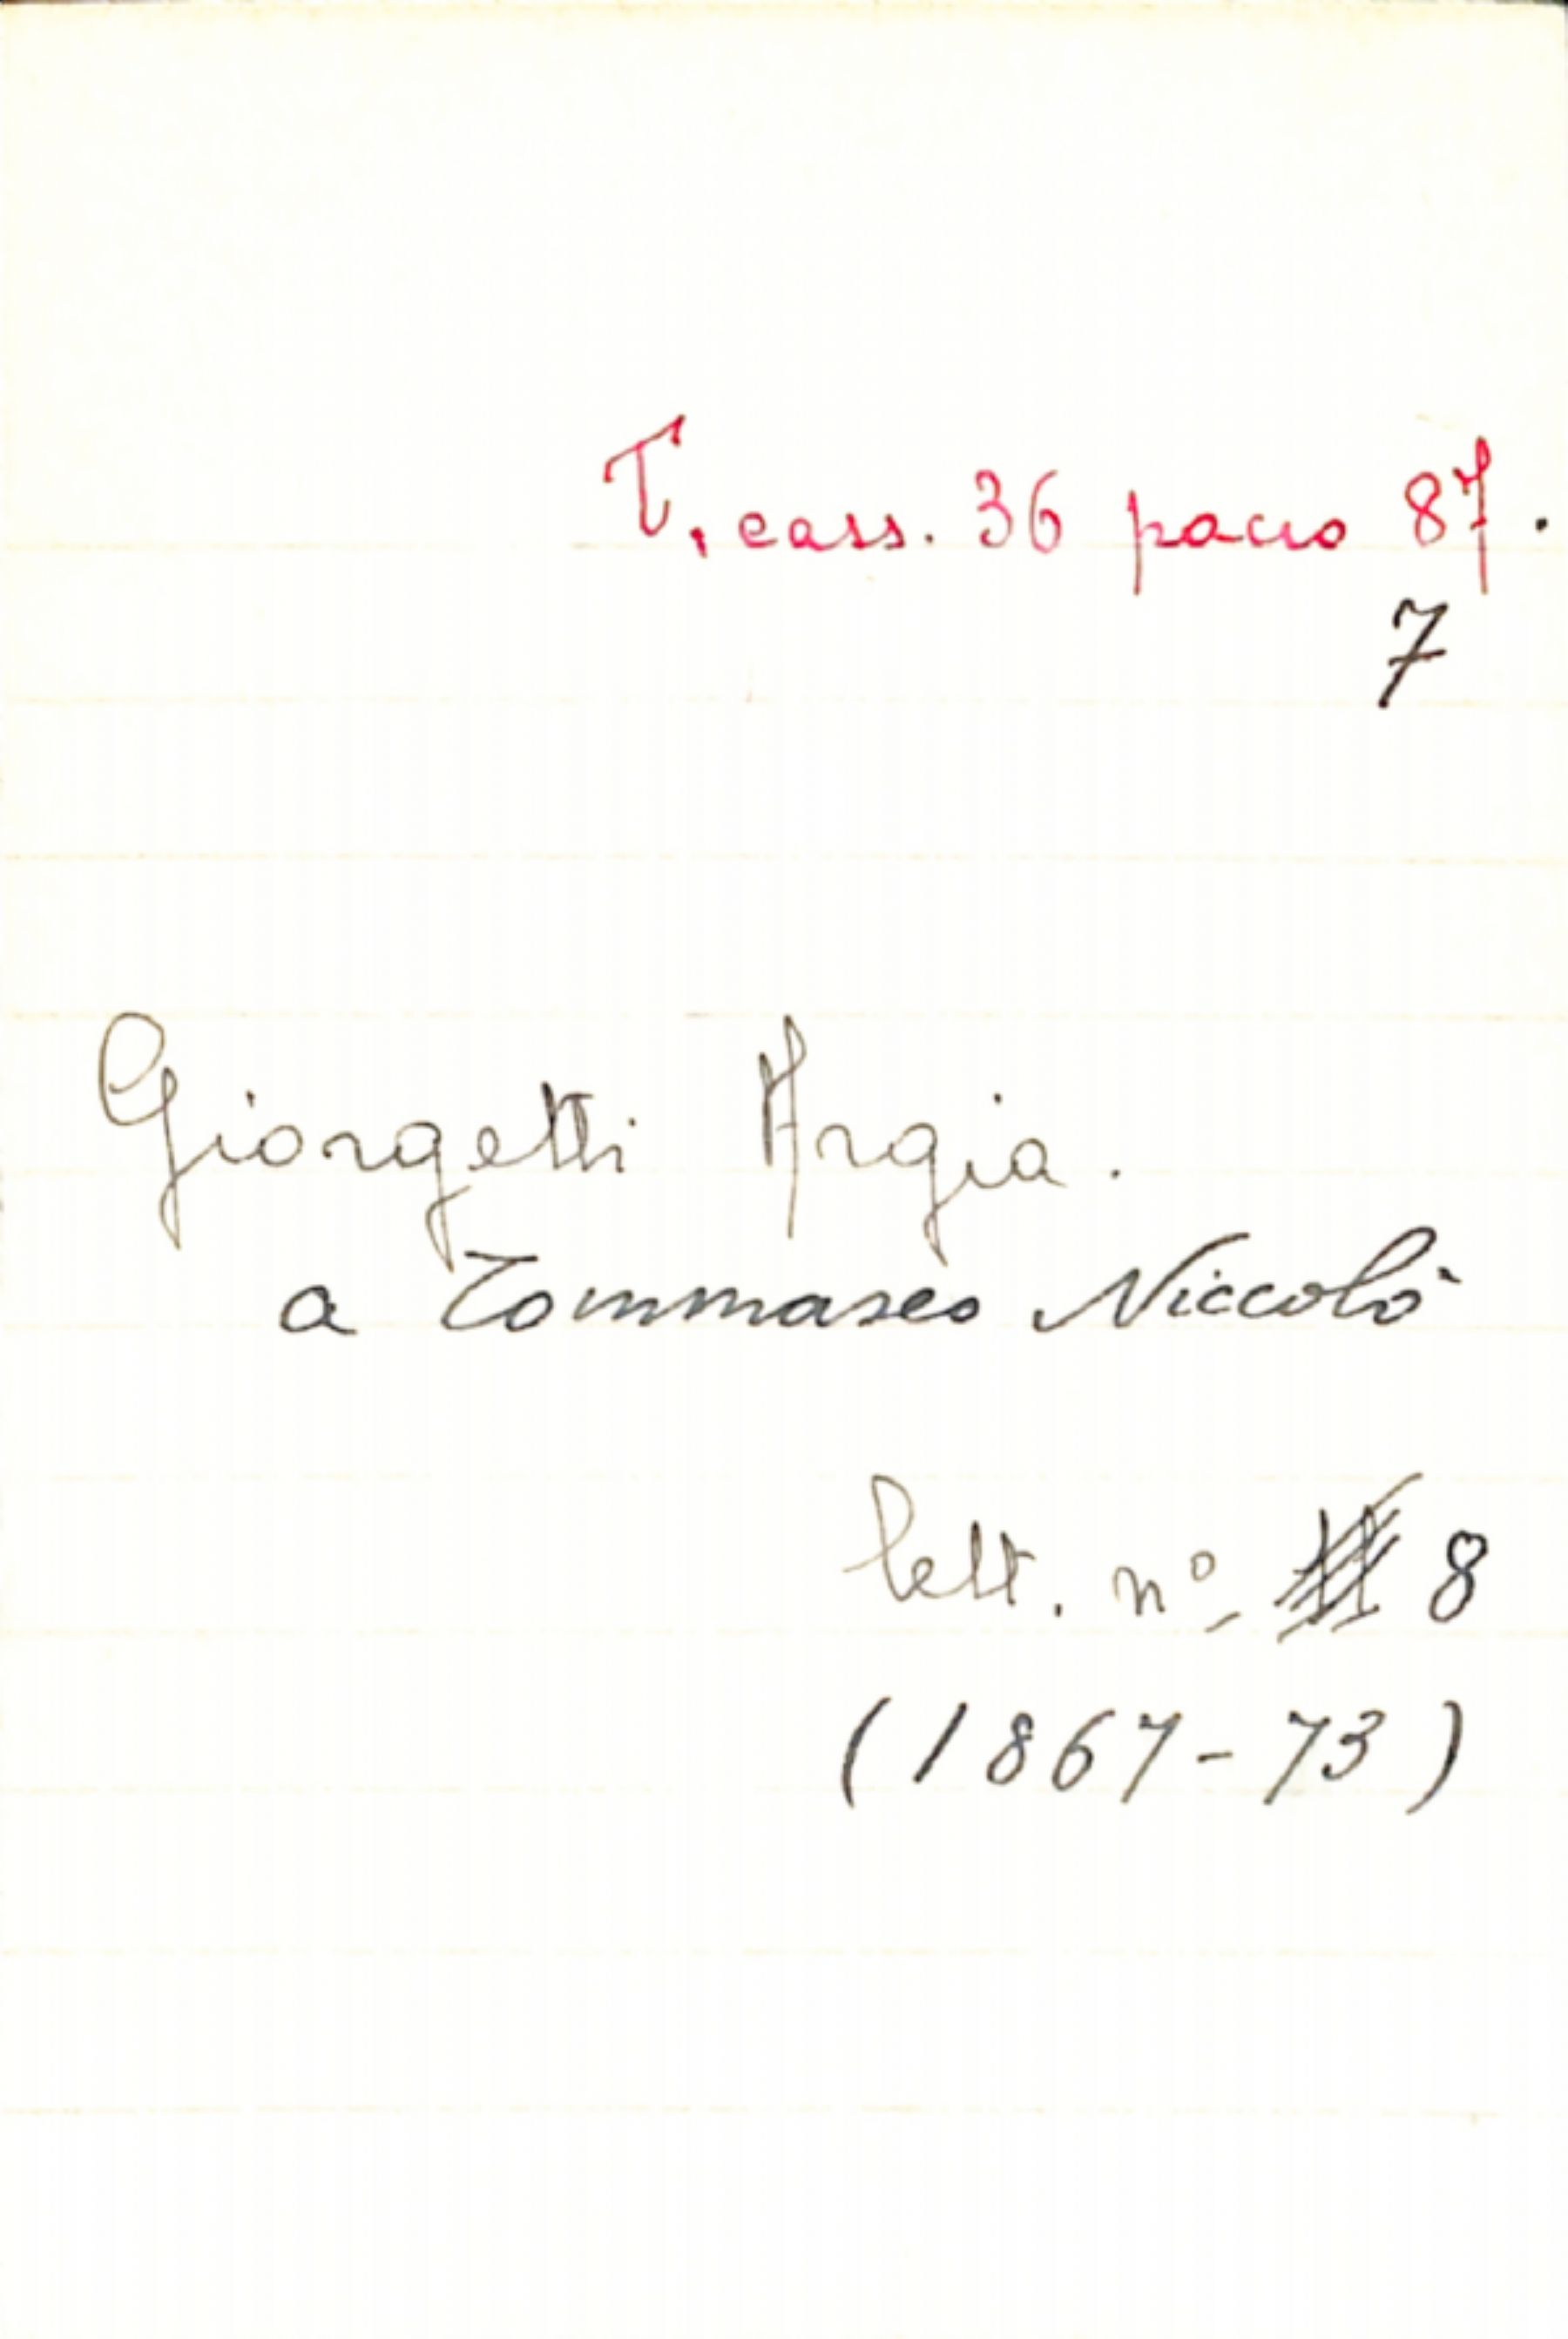 T. cass. 36 pacco 87.
7
Giorgetti Argia.
a Tommaseo Niccolò
lett. nº 8
(1867-73)